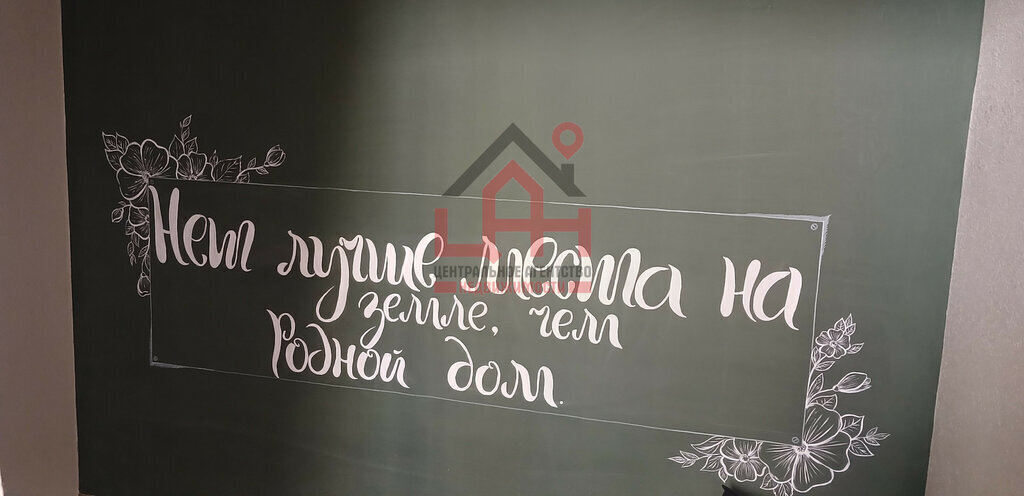 Нет лучше места на
земле, чем
Родной дом.
ЦАН
ЦЕНТРАЛЬНОЕ АГЕНТСТВО
НЕДВИЖИМОСТИ